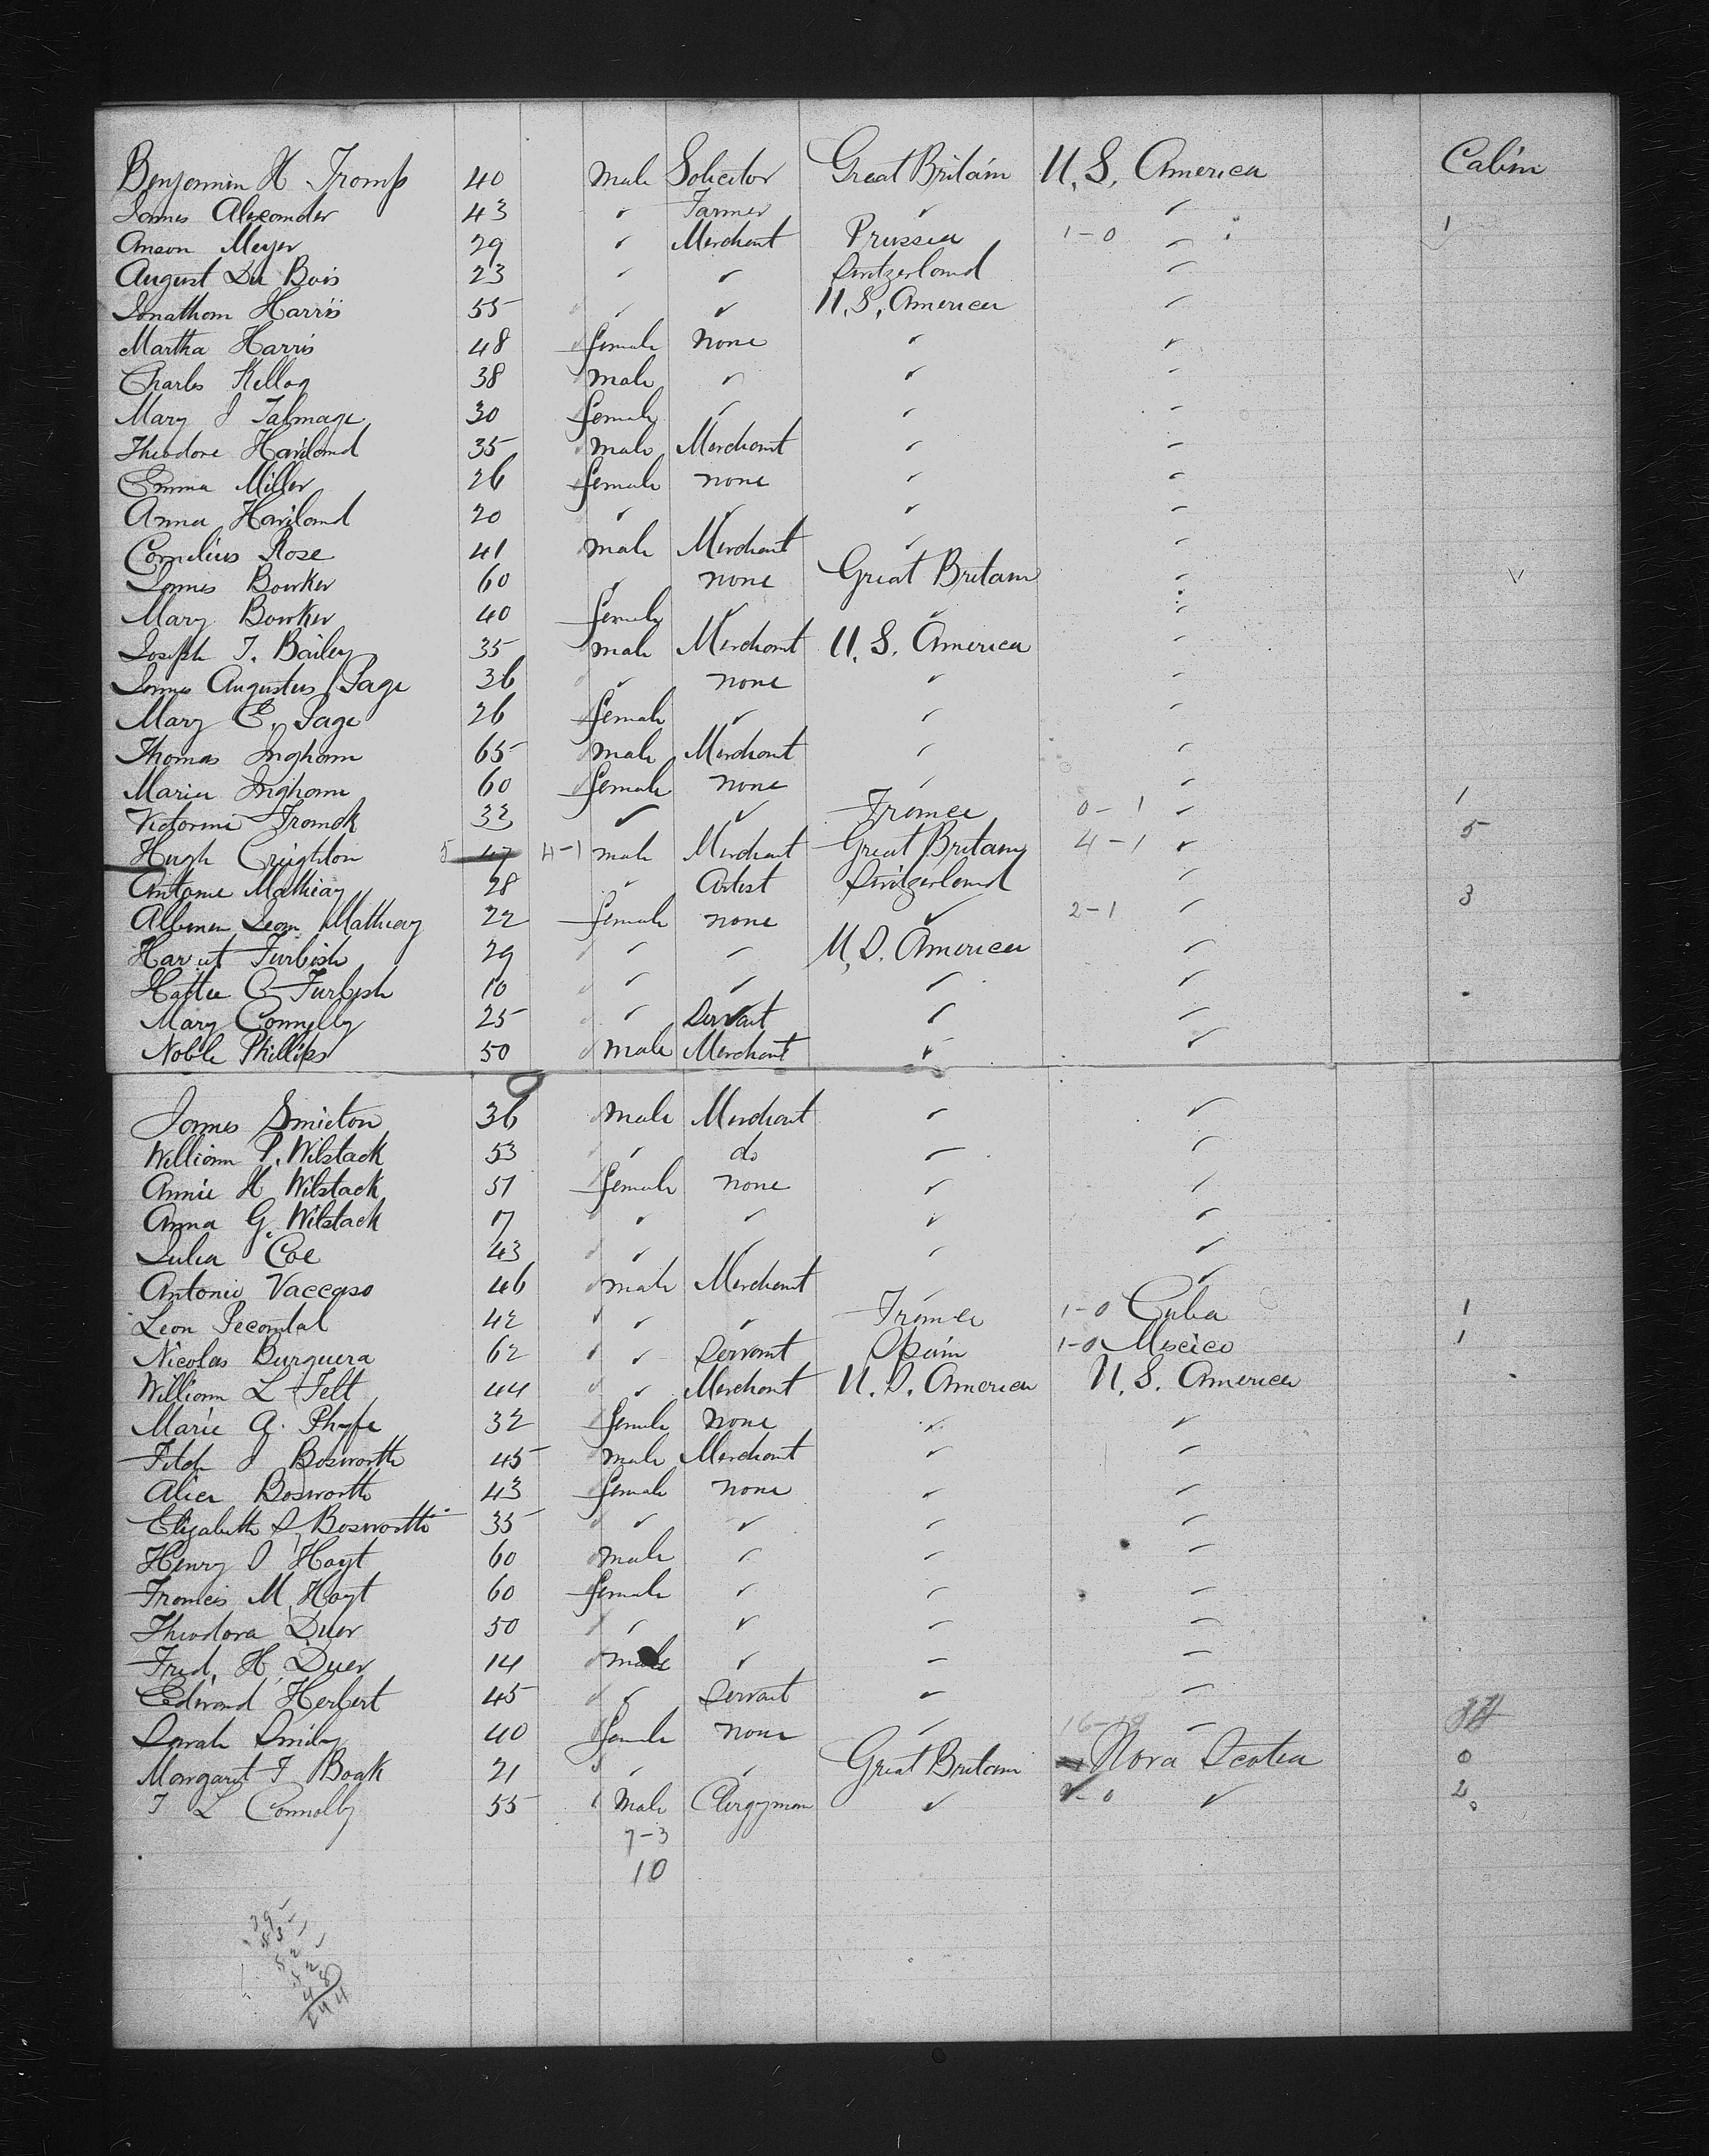 Benjamin H Tromp 40 male Solicitor Great Britain U.S. America Cabin
James Alexander 43 ✓ Farmer ✓ ✓
Anson Meyer 29 ✓ Merchant Prussia 1-0 ✓ 1
August Du Bois 23 ✓ ✓ Switzerland ✓
Jonathan Harris 55 ✓ ✓ U.S. America ✓
Martha Harris 48 female none ✓ ✓
Charles Kellog 38 male ✓ ✓ ✓
Mary J Talmage 30 female ✓ ✓ ✓
Theodore Haviland 35 male Merchant ✓ ✓
Emma Miller 26 female none ✓ ✓
Anna Haviland 20 ✓ ✓ ✓ ✓
Cornelius Rose 41 male Merchant ✓ ✓
James Bowker 60 ✓ none Great Britain ✓
Mary Bowker 40 female ✓ ✓ ✓
Joseph T. Bailey 35 male Merchant U.S. America ✓
James Augustus Page 36 ✓ none ✓ ✓
Mary E. Page 26 female ✓ ✓ ✓
Thomas Ingham 65 male Merchant ✓ ✓
Maria Ingham 60 female none ✓ ✓
Victorine 33 ✓ ✓ France 0-1 ✓ 1
Hugh Creighton 5 47 4-1 male Merchant Great Britain 4-1 ✓ 5
Antoine Mathiay 28 ✓ Artist Switzerland ✓
Leon Mathiay 22 female none ✓ 2-1 ✓ 3
Furbish 29 ✓ ✓ U.S. America ✓
Hattie C Furbish 10 ✓ ✓ ✓ ✓
Mary Connelly 25 ✓ Servant ✓ ✓
Noble Phillips 50 male Merchant ✓ ✓
James Smieton 36 male Merchant ✓ ✓
William P. Wilstack 53 ✓ do ✓ ✓
Annie H Wilstack 51 female none ✓ ✓
Anna G. Wilstack 17 ✓ ✓ ✓ ✓
Julia Coe 43 ✓ ✓ ✓ ✓
Antonio Vaccaso 46 male Merchant ✓
Leon 42 ✓ ✓ France 1-0 Cuba 1
Nicolas Burguera 62 ✓ Servant Spain 1-0 Mexico 1
William L Felt 44 ✓ Merchant U.S. America U.S. America
Marie A. Phyfe 32 female none ✓ ✓
Fitch J Bosworth 45 male Merchant ✓ ✓
Alice Bosworth 43 female none ✓ ✓
Elizabeth S. Bosworth 35 ✓ ✓ ✓ ✓
Henry S Hoyt 60 male ✓ ✓ ✓
Frances M Hoyt 60 female ✓ ✓ ✓
Theodora Duer 50 ✓ ✓ ✓ ✓
Fred. H. Duer 14 male ✓ ✓ ✓
Edward Herbert 45 ✓ Servant ✓ ✓
Sarah Smiley 40 female none ✓ ✓
Margaret F Boak 21 ✓ ✓ Great Britain Nova Scotia 0
T L Connolly 55 male Clergyman ✓ 2-0 ✓ 2
7-3
10
39
53
52
52
48
244